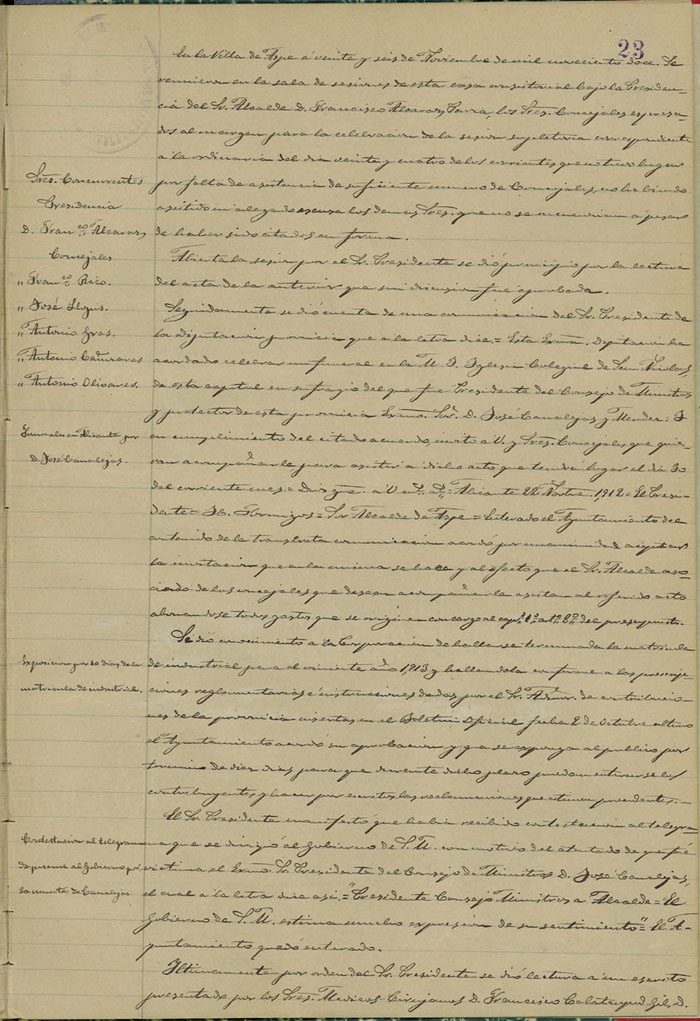 23
En la Villa de Aspe á veinte y seis de Noviembre de mil novecientos doce. Se
reunieron en la sala de sesiones de esta casa consistorial bajo la Presiden-
cia del Sr. Alcalde D. Francisco Alcaraz Pavia, los Sres. Concejales expresa-
dos al margen para la celebracion de la sesion supletoria correspondiente
á la ordinaria del dia veinte y cuatro de los corrientes que no tuvo lugar
por falta de asistencia de suficiente numero de Concejales, no habiendo
asistido ni alegado escusa los demas Sres. que no se mencionan a pesar
de haber sido citados en forma.
Sres. Concurrentes
Presidencia
D. Franco. Alcaraz
Concejales
" Franco. Rico.
" José
" Antonio Gras.
" Antonio Cañizares
" Antonio Olivares.
Abierta la sesion por el Sr. Presidente se dió principio por la lectura
del acta de la anterior que sin discusion fue aprobada.
Seguidamente se dió cuenta de una comunicacion del Sr. Presidente de
la Diputacion provincial que a la letra dice = Esta Excma. Diputacion ha
acordado celebrar un funeral en la M. I. Iglesia Colegial de San Nicolas
de esta capital en sufragio del que fue Presidente del Consejo de Ministros
y protector de esta provincia Excmo. Sor. D. José Canalejas y Mendez. Y
en cumplimiento del citado acuerdo, invito a V. y Sres. Concejales, que quie-
ran acompañarle para asistir a dicho acto que tendrá lugar el dia 30
del corriente mes = Dios gue. a V. = Alicante 22 Novbre. 1912 = El Presi-
dente = = Sor. Alcalde de Aspe = Enterado el Ayuntamiento del
contenido de la transcrita comunicacion acordó por unanimidad aceptar
la invitacion que en la misma se hace y al efecto que el Sr. Alcalde aso-
ciado de los concejales que desean acompañarle asistan al referido acto
abonandose todos gastos que se origin con cargo al capº. 1º. artº. 8º. del presupuesto.
Funerales en Alicante por
D. José Canalejas.
Se dió conocimiento a la Corporacion de hallarse terminada la matricula
de industrial para el proximo año 1913 y hallandola conforme a las prescrip-
ciones reglamentarias é instrucciones dadas por el Sr. Admor. de contribucio-
nes de la provincia insertas en el Boletin oficial fecha 2 de Octubre ultimo
el Ayuntamiento acordó su aprobacion y que se esponga al publico por
termino de diez dias para que durante dicho plazo puedan enterarse los
contribuyentes, y hacer por escrito las reclamaciones que estimen procedentes.
Exposicion por 10 dias de la
matricula de industrial.
El Sr. Presidente manifestó que habia recibido contestacion al telegra-
ma que se dirigió al Gobierno de S. M. con motivo del atentado de que fué
victima el Excmo. Sr. Presidente del Consejo de Ministros D. José Canalejas,
el cual a la letra dice asi. = "Presidente Consejo Ministros a Alcalde = El
Gobierno de S. M. estima mucho expresion de su sentimiento" = El A-
yuntamiento quedó enterado.
Contestacion al telegrama
de pesame al Gobierno por
la muerte de Canalejas
Ultimamente por orden del Sr. Presidente se dió lectura a un escrito
presentado por los Sres. Medicos Cirujanos D. Francisco Calatayud Gil, D.